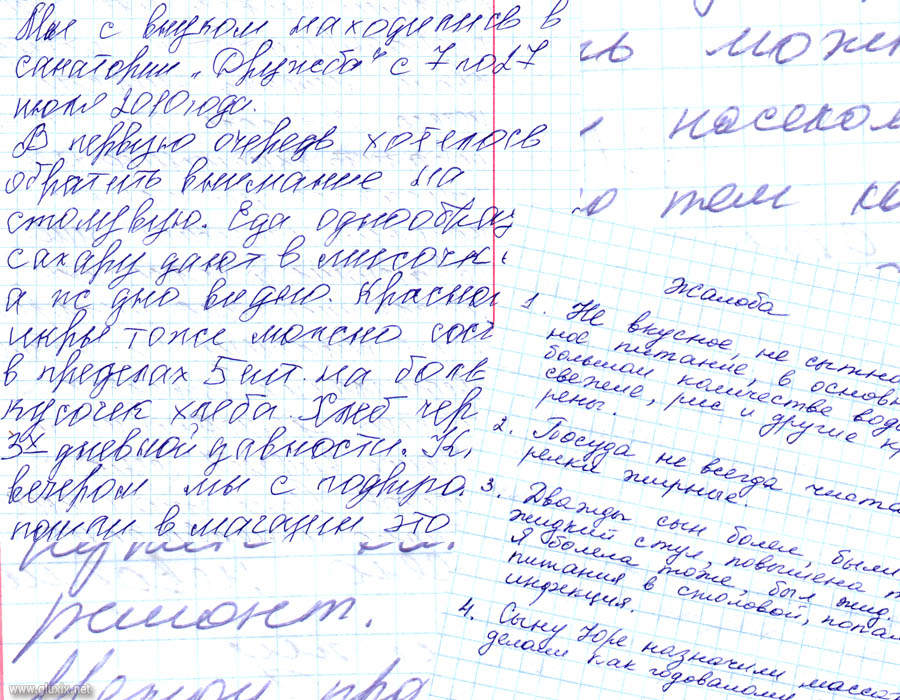 Мы с внуком находились в
санатории „Дружба" с 7 по 27
июля 2010 года.
В первую очередь хотелось
обратить внимание на
столувую. Еда однообраз
сахару дают в мисочк
а пс дно видно. Красной
икры тоже можно сост
в пределах 5 шт. на боль
кусочек хлеба. Хлеб чер
3х дневной давности. К
вечером мы с подруго
пошли в магазин это
ремонт.
ь може
насеком
о том ка
Жалоба
1. Не вкусное, не сытно
ное питание, в основн
большом количестве воды
свежие, рис и другие кр
рены.
2. Посуда не всегда чиста
релки жирные.
3. Дважды сын болел, были
жидкий стул, повышена т
Я болела тоже, был жид.
питания в столовой, попал
инфекция.
4. Сыну Юре назначили массаж
делали как годовалому
www.gluxix.net